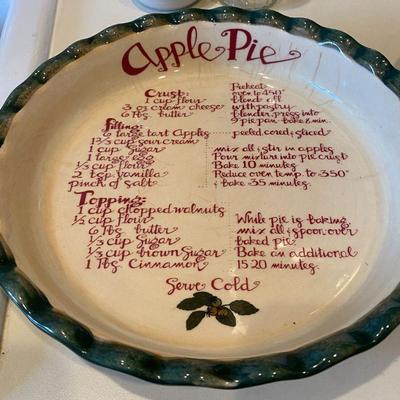 Apple Pie
Crust:
1 cup flour
3 oz cream cheese
6 Tbs. butter
Preheat
oven to 450°
blend all
with pastry
blender, press into
9" pie pan bake 8 min.
Filling:
6 large tart Apples
peeled, cored & sliced
1 2/3 cup sour cream
1 cup Sugar
1 large egg
1/3 cup flour
2 tsp vanilla
pinch of salt
mix all & stir in apples
Pour mixture into pie crust
Bake 10 minutes.
Reduce oven temp. to 350°
& bake 35 minutes.
Topping:
1 cup chopped walnuts
1/2 cup flour
6 Tbs. butter
1/3 cup Sugar
1/3 cup brown Sugar
1 Tbs. Cinnamon
While pie is baking
mix all & spoon over
baked pie.
Bake an additional
15-20 minutes.
Serve Cold